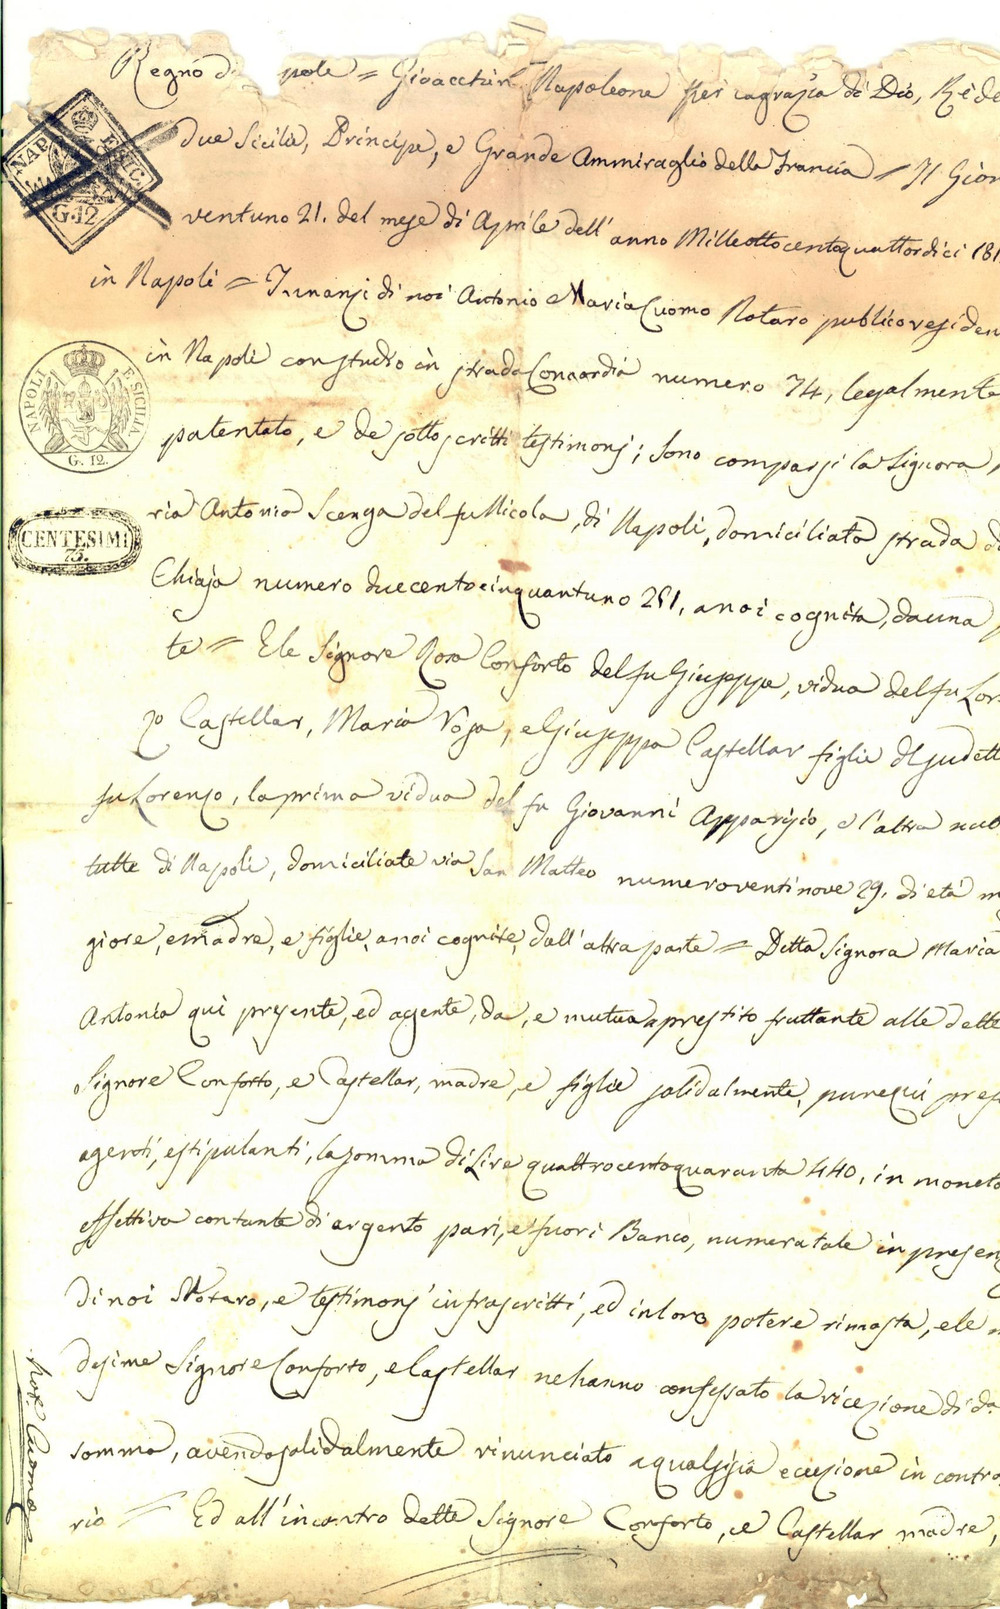 Regno d pole = Gioacchin Napoleone per la grazia di Dio, Re de
due Sicilie, Principe, e Grande Ammiraglio della Francia = Il Gior
NAP. E SIC.
G. 12
ventuno 21. del mese di Aprile dell' anno Milleottocentoquattordici 181
in Napoli = Innanzi di noi Antonio Maria Cuomo Notaro publico residen
NAPOLI E SICILIA
G. 12.
in Napoli con studio in strada Concordia numero 74, legalmente
patentato, e de sottoscritti testimonj; sono comparsi la Signora
ria Antonia Scenga del fu Nicola, di Napoli, domiciliata strada d
CENTESIMI
75.
Chiaja numero duecentocinquantuno 251, a noi cognita, da una
te = E le Signore Rosa Conforto del fu Giuseppe, vidua del fu Lor
zo Castellar, Maria Rosa, e Giuseppa Castellar figlie del sudett
fu Lorenzo, la prima vidua del fu Giovanni Apparisio, e l'altra nub
tutte di Napoli, domiciliate via San Matteo numero ventinove 29. di età m
giore, e madre, e figlie, a noi cognite, dall' altra parte = Detta Signora Maria
Antonia qui presente, ed agente, da, e mutua a prestito fruttante alle dette
Signore Conforto, e Castellar, madre, e figlie solidalmente, pure qui pres
agenti, e stipulanti, la somma di Lire quattrocentoquaranta 440, in moneta
effettiva contante di argento pari, e fuori Banco, numeratale in presen
di noi Notaro, e testimonj infrascritti, ed in loro potere rimasta, e le m
desime Signore Conforto, e Castellar ne hanno confessato la ricezione di da
somma, avendo solidalmente rinunciato a qualsisia eccezione in contra
rio = Ed all' incontro dette Signore Conforto, e Castellar madre,
Not. Cuomo